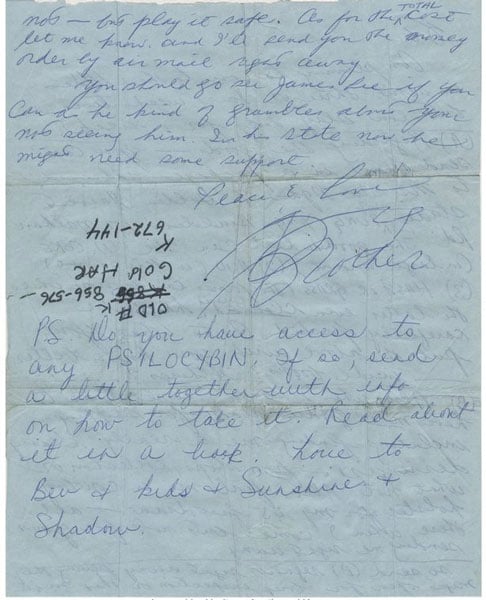 TOTAL
not – but play it safe. As for the cost
let me know and I'll send you the money
order by air mail right away.
You should go see James Lee if you
can as he kind of grumbles about your
not seeing him. In his state now he
might need some support.
Peace & Love
Brother
OLD # K
866-576-
HAR
K
672-144
PS. Do you have access to
any PSILOCYBIN, If so, send
a little together with info
on how to take it. Read about
it in a book. Love to
Bev & kids & Sunshine &
Shadow.